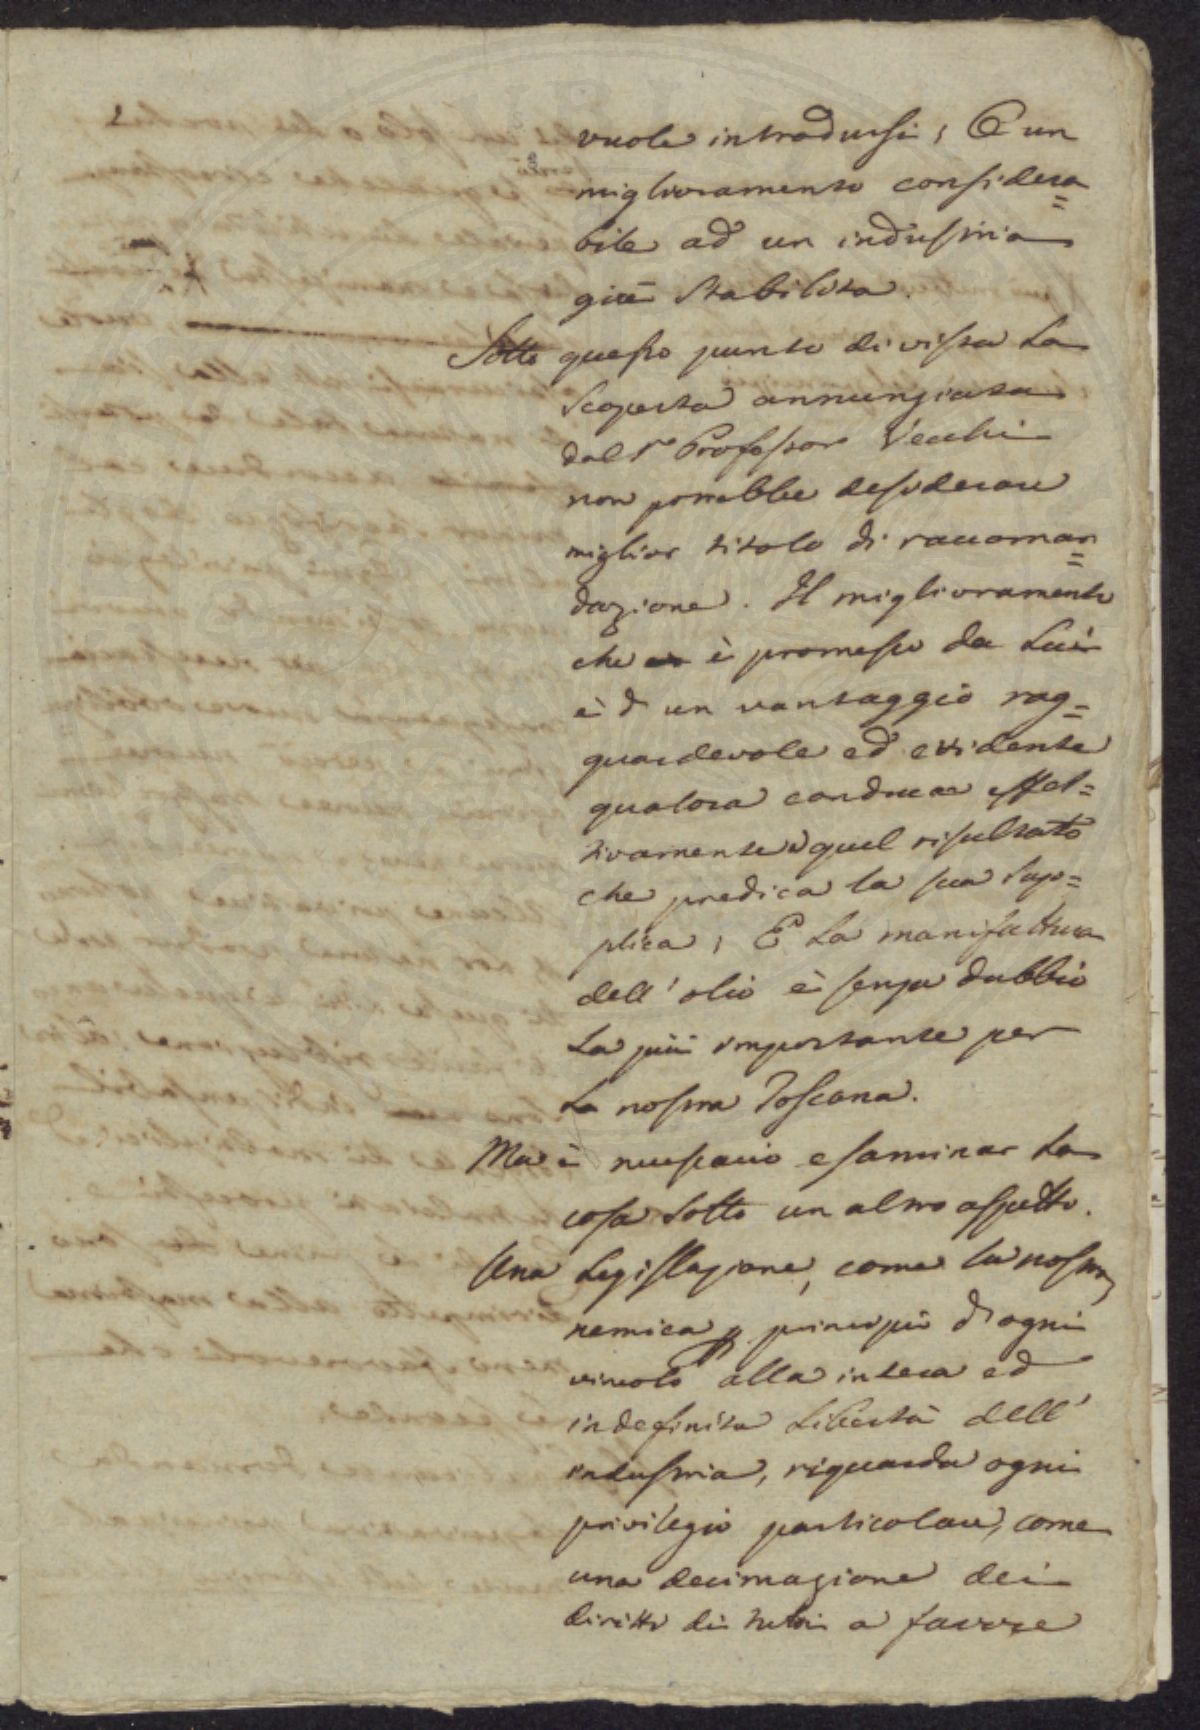 vuole introdursi; O un
miglioramento considera=
bile ad un industria
già stabilita.
Sotto questo punto di vista La
Scoperta annunziata
dal Sr Professor Vecchi
non potrebbe desiderare
miglior titolo di raccoman=
dazione. Il miglioramento
che è promesso da Lui
è d'un vantaggio rag=
guardevole ed evidente
qualora conduca effet=
tivamente a quel risultato
che predica la sua Sup=
plica; E La manifattura
dell'olio è senza dubbio
La più importante per
La nostra Toscana.
Ma è necessario esaminar La
cosa Sotto un altro aspetto.
Una Legislazione, come la nostra,
nemica per principio d'ogni
vincolo alla intera ed
indefinita Libertà dell'
industria, riguarda ogni
privilegio particolare, come
una decimazione dei
diritti di tutti a favore